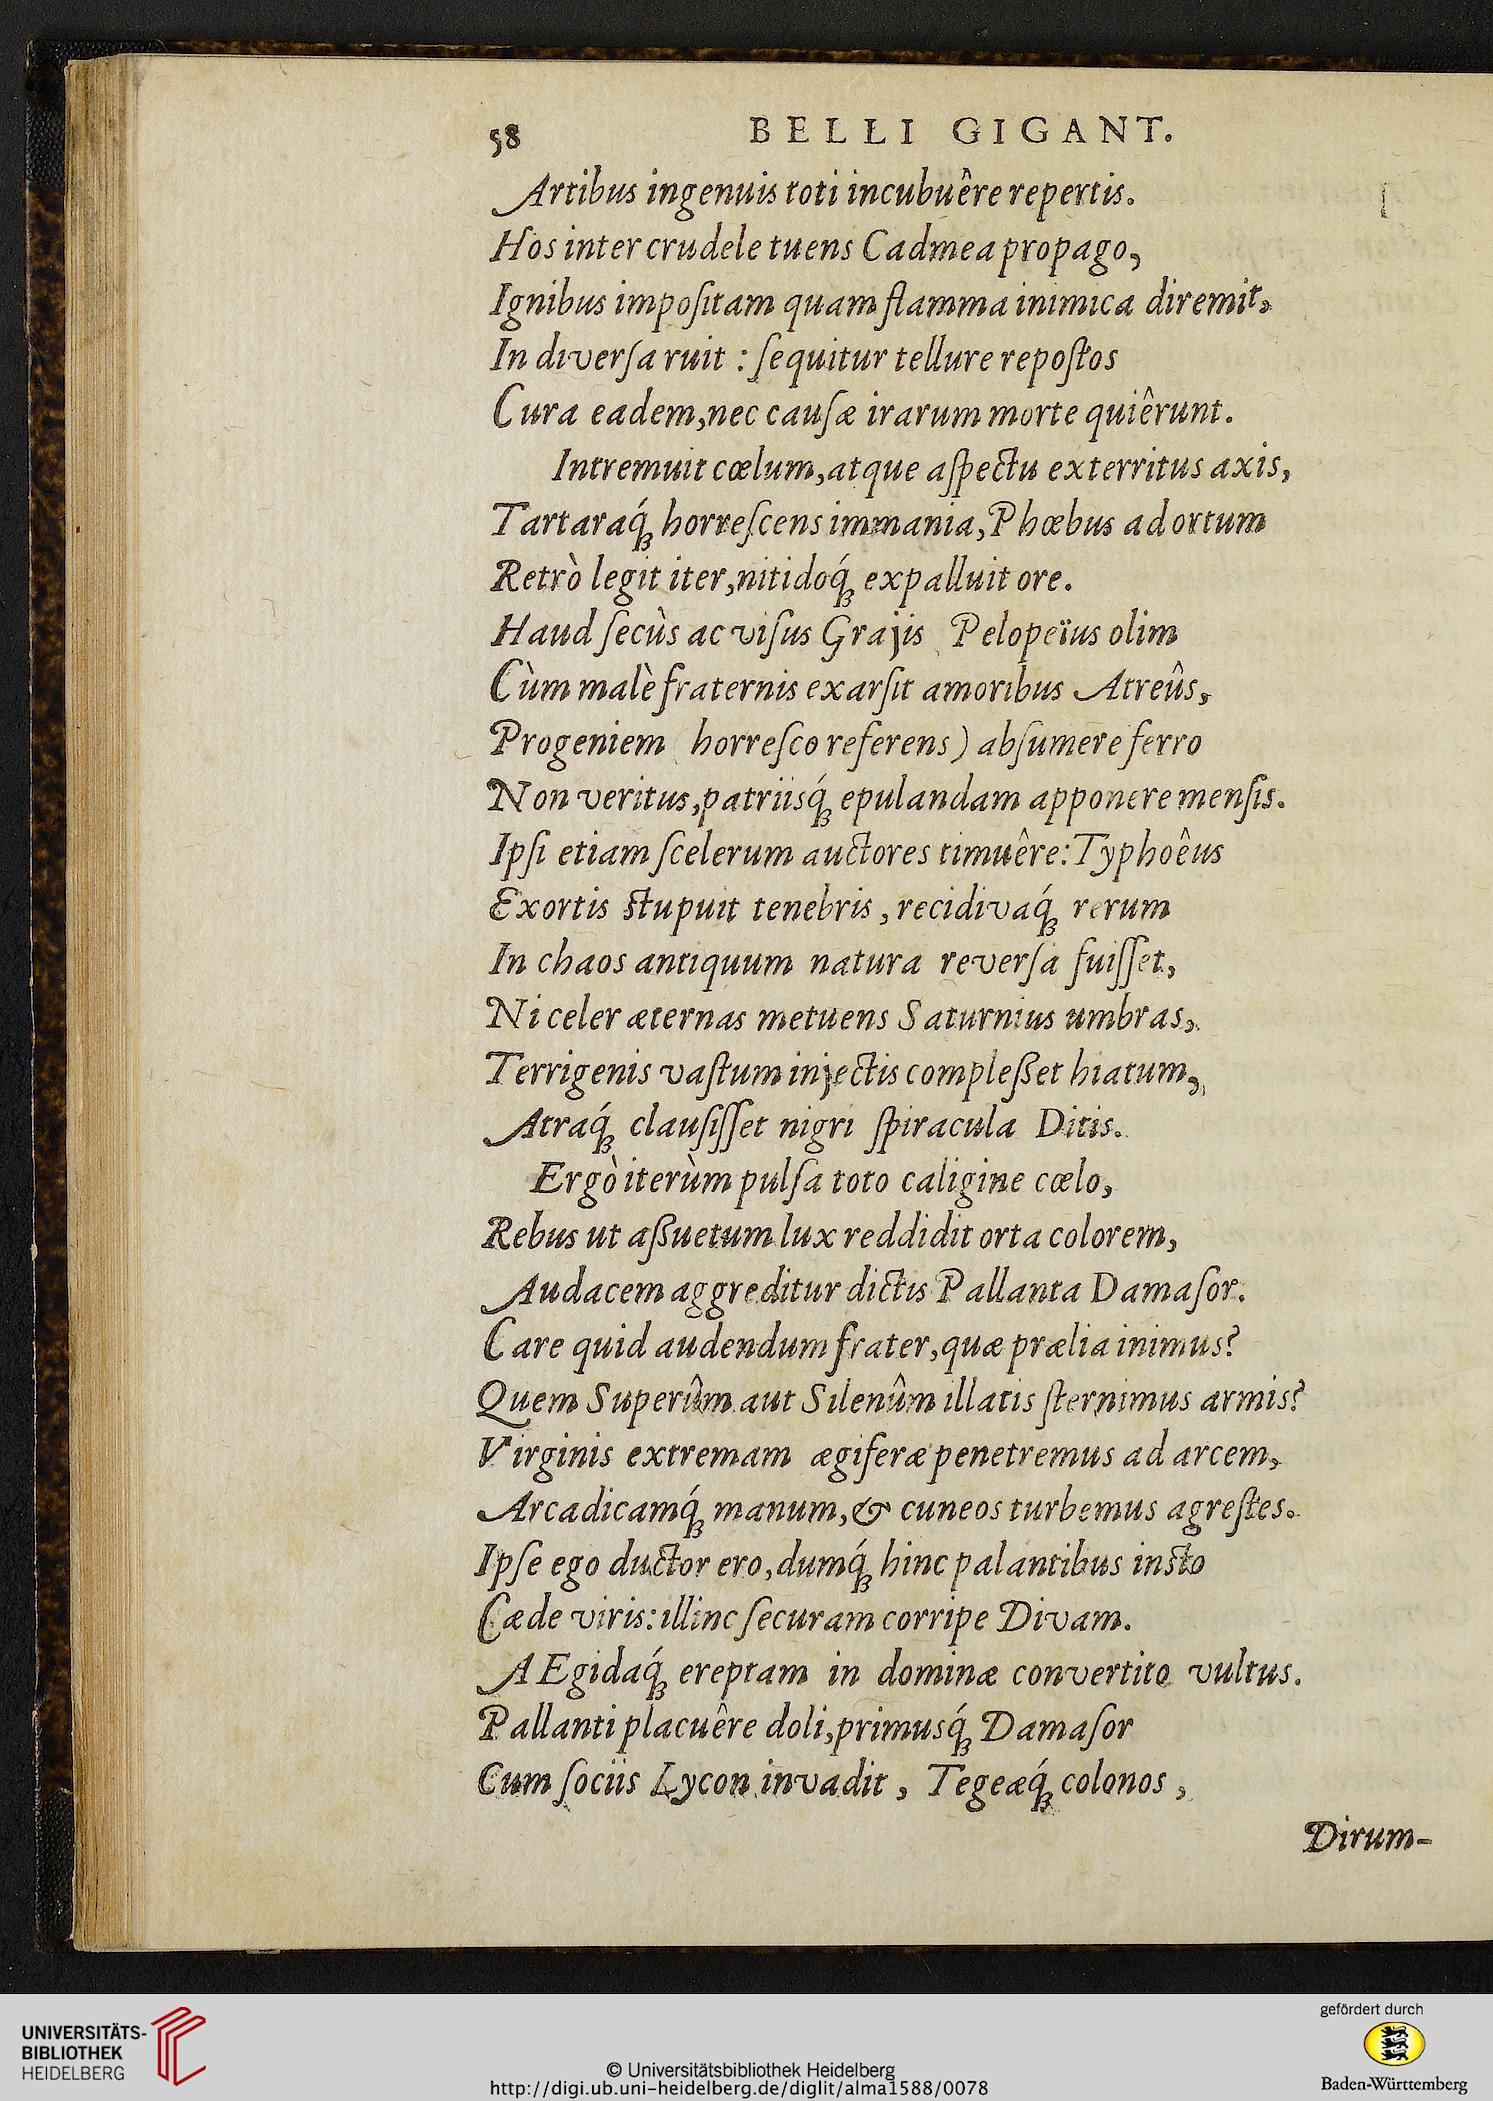 58 BELLI GIGANT.
Artibus ingenuis toti incubuêre repertis.
Hos inter crudele tuens Cadmea propago,
Ignibus impoſitam quam flamma inimica diremit,
In diverſa ruit : ſequitur tellure repoſtos
Cura eadem, nec cauſæ irarum morte quiêrunt.
Intremuit cœlum, atque aſpectu exterritus axis,
Tartaraq́ꝫ horreſcens immania, Phœbus ad ortum
Retrò legit iter, nitidoq́ꝫ expalluit ore.
Haud ſecùs ac viſus Grajis Pelopeïus olim
Cùm malè fraternis exarſit amoribus Atreûs,
Progeniem horreſco referens) abſumere ferro
Non veritus, patriisq́ꝫ epulandam apponere menſis.
Ipſi etiam ſcelerum auctores timuêre: Typhoêus
Exortis ſtupuit tenebris, recidivaq́ꝫ rerum
In chaos antiquum natura reverſa fuiſſet,
Ni celer æternas metuens Saturnius umbras,
Terrigenis vaſtum injectis compleßet hiatum,
Atraq́ꝫ clauſiſſet nigri ſpiracula Ditis.
Ergò iterùm pulſa toto caligine cœlo,
Rebus ut aßuetum lux reddidit orta colorem,
Audacem aggreditur dictis Pallanta Damaſor.
Care quid audendum frater, quæ prælia inimus?
Quem Superûm aut Silenûm illatis ſternimus armis?
Virginis extremam ægiferæ penetremus ad arcem,
Arcadicamq́ꝫ manum, & cuneos turbemus agreſtes.
Ipſe ego ductor ero, dumq́ꝫ hinc palantibus inſto
Cæde viris: illinc ſecuram corripe Divam.
AEgidaq́ꝫ ereptam in dominæ convertito vultus.
Pallanti placuêre doli, primusq́ꝫ Damaſor
Cum ſociis Lycon invadit, Tegeæq́ꝫ colonos,
Dirum-
UNIVERSITÄTS-
BIBLIOTHEK
HEIDELBERG
© Universitätsbibliothek Heidelberg
http://digi.ub.uni-heidelberg.de/diglit/alma1588/0078
gefördert durch
Baden-Württemberg